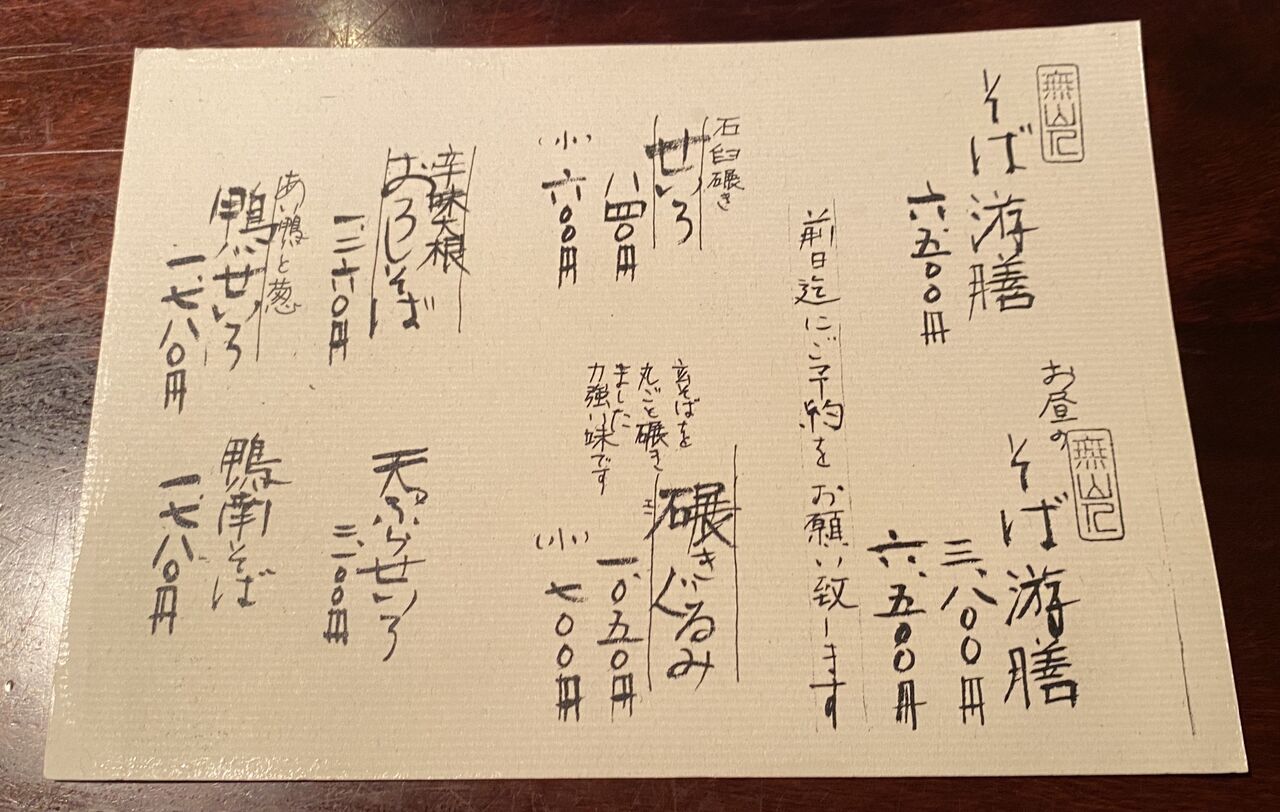 無山
そば游膳
六、五〇〇円
お昼の
無山
そば游膳
三、八〇〇円
六、五〇〇円
前日迄にご予約をお願い致します
石臼碾き
せいろ
八四〇円
(小)
六〇〇円
碾きぐるみ
玄そばを
丸ごと碾き
ました
力強い味です
一、〇五〇円
(小)
七〇〇円
辛味大根
おろしそば
一、二六〇円
天ぷらせいろ
三、一〇〇円
あい鴨と葱
鴨せいろ
一、七八〇円
鴨南そば
一、七八〇円